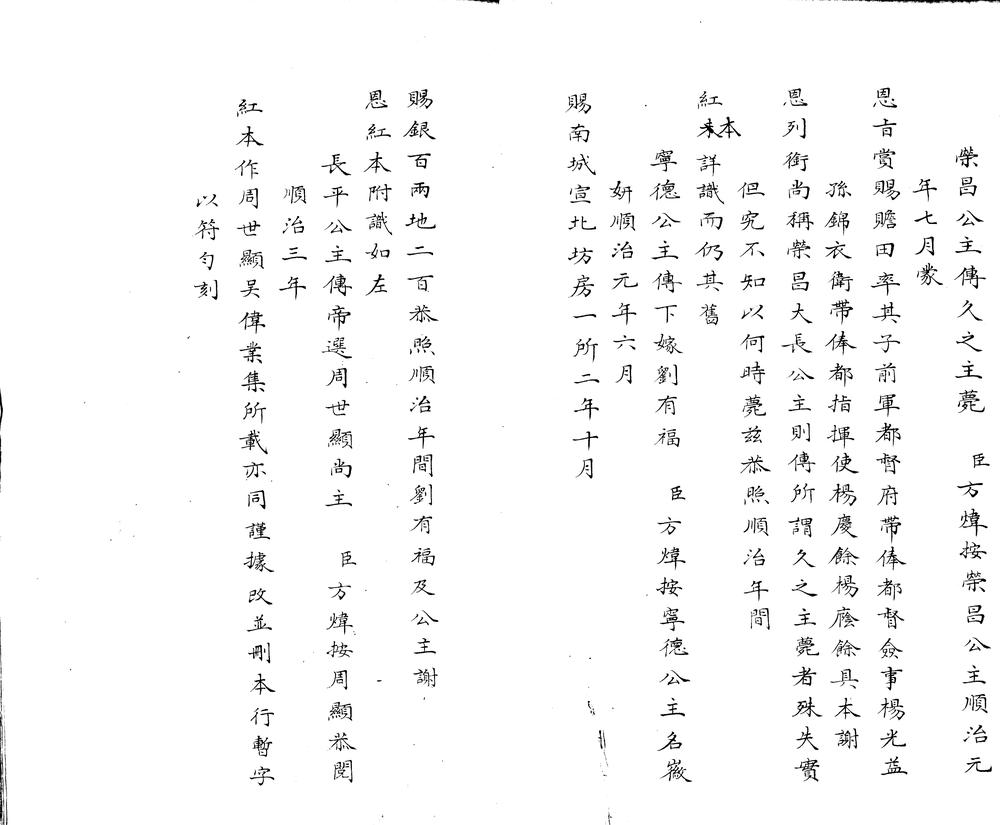 榮昌公主傳久之主薨　臣方煒按榮昌公主順治元
年七月蒙
恩旨賞賜贍田率其子前軍都督府帶俸都督僉事楊光益
孫錦衣衛帶俸都指揮使楊慶餘楊廕餘具本謝
恩列銜尚稱榮昌大長公主則傳所謂久之主薨者殊失實
但究不知以何時薨茲恭照順治年間
紅本未詳識而仍其舊
寧德公主傳下嫁劉有福　臣方煒按寧德公主名嶶
妍順治元年六月
賜南城宣北坊房一所二年十月
賜銀百兩地二百恭照順治年間劉有福及公主謝
恩紅本附識如左
長平公主傳帝選周世顯尚主　臣方煒按周顯恭閱
順治三年
紅本作周世顯吳偉業集所載亦同謹據改並刪本行暫字
以符勻刻